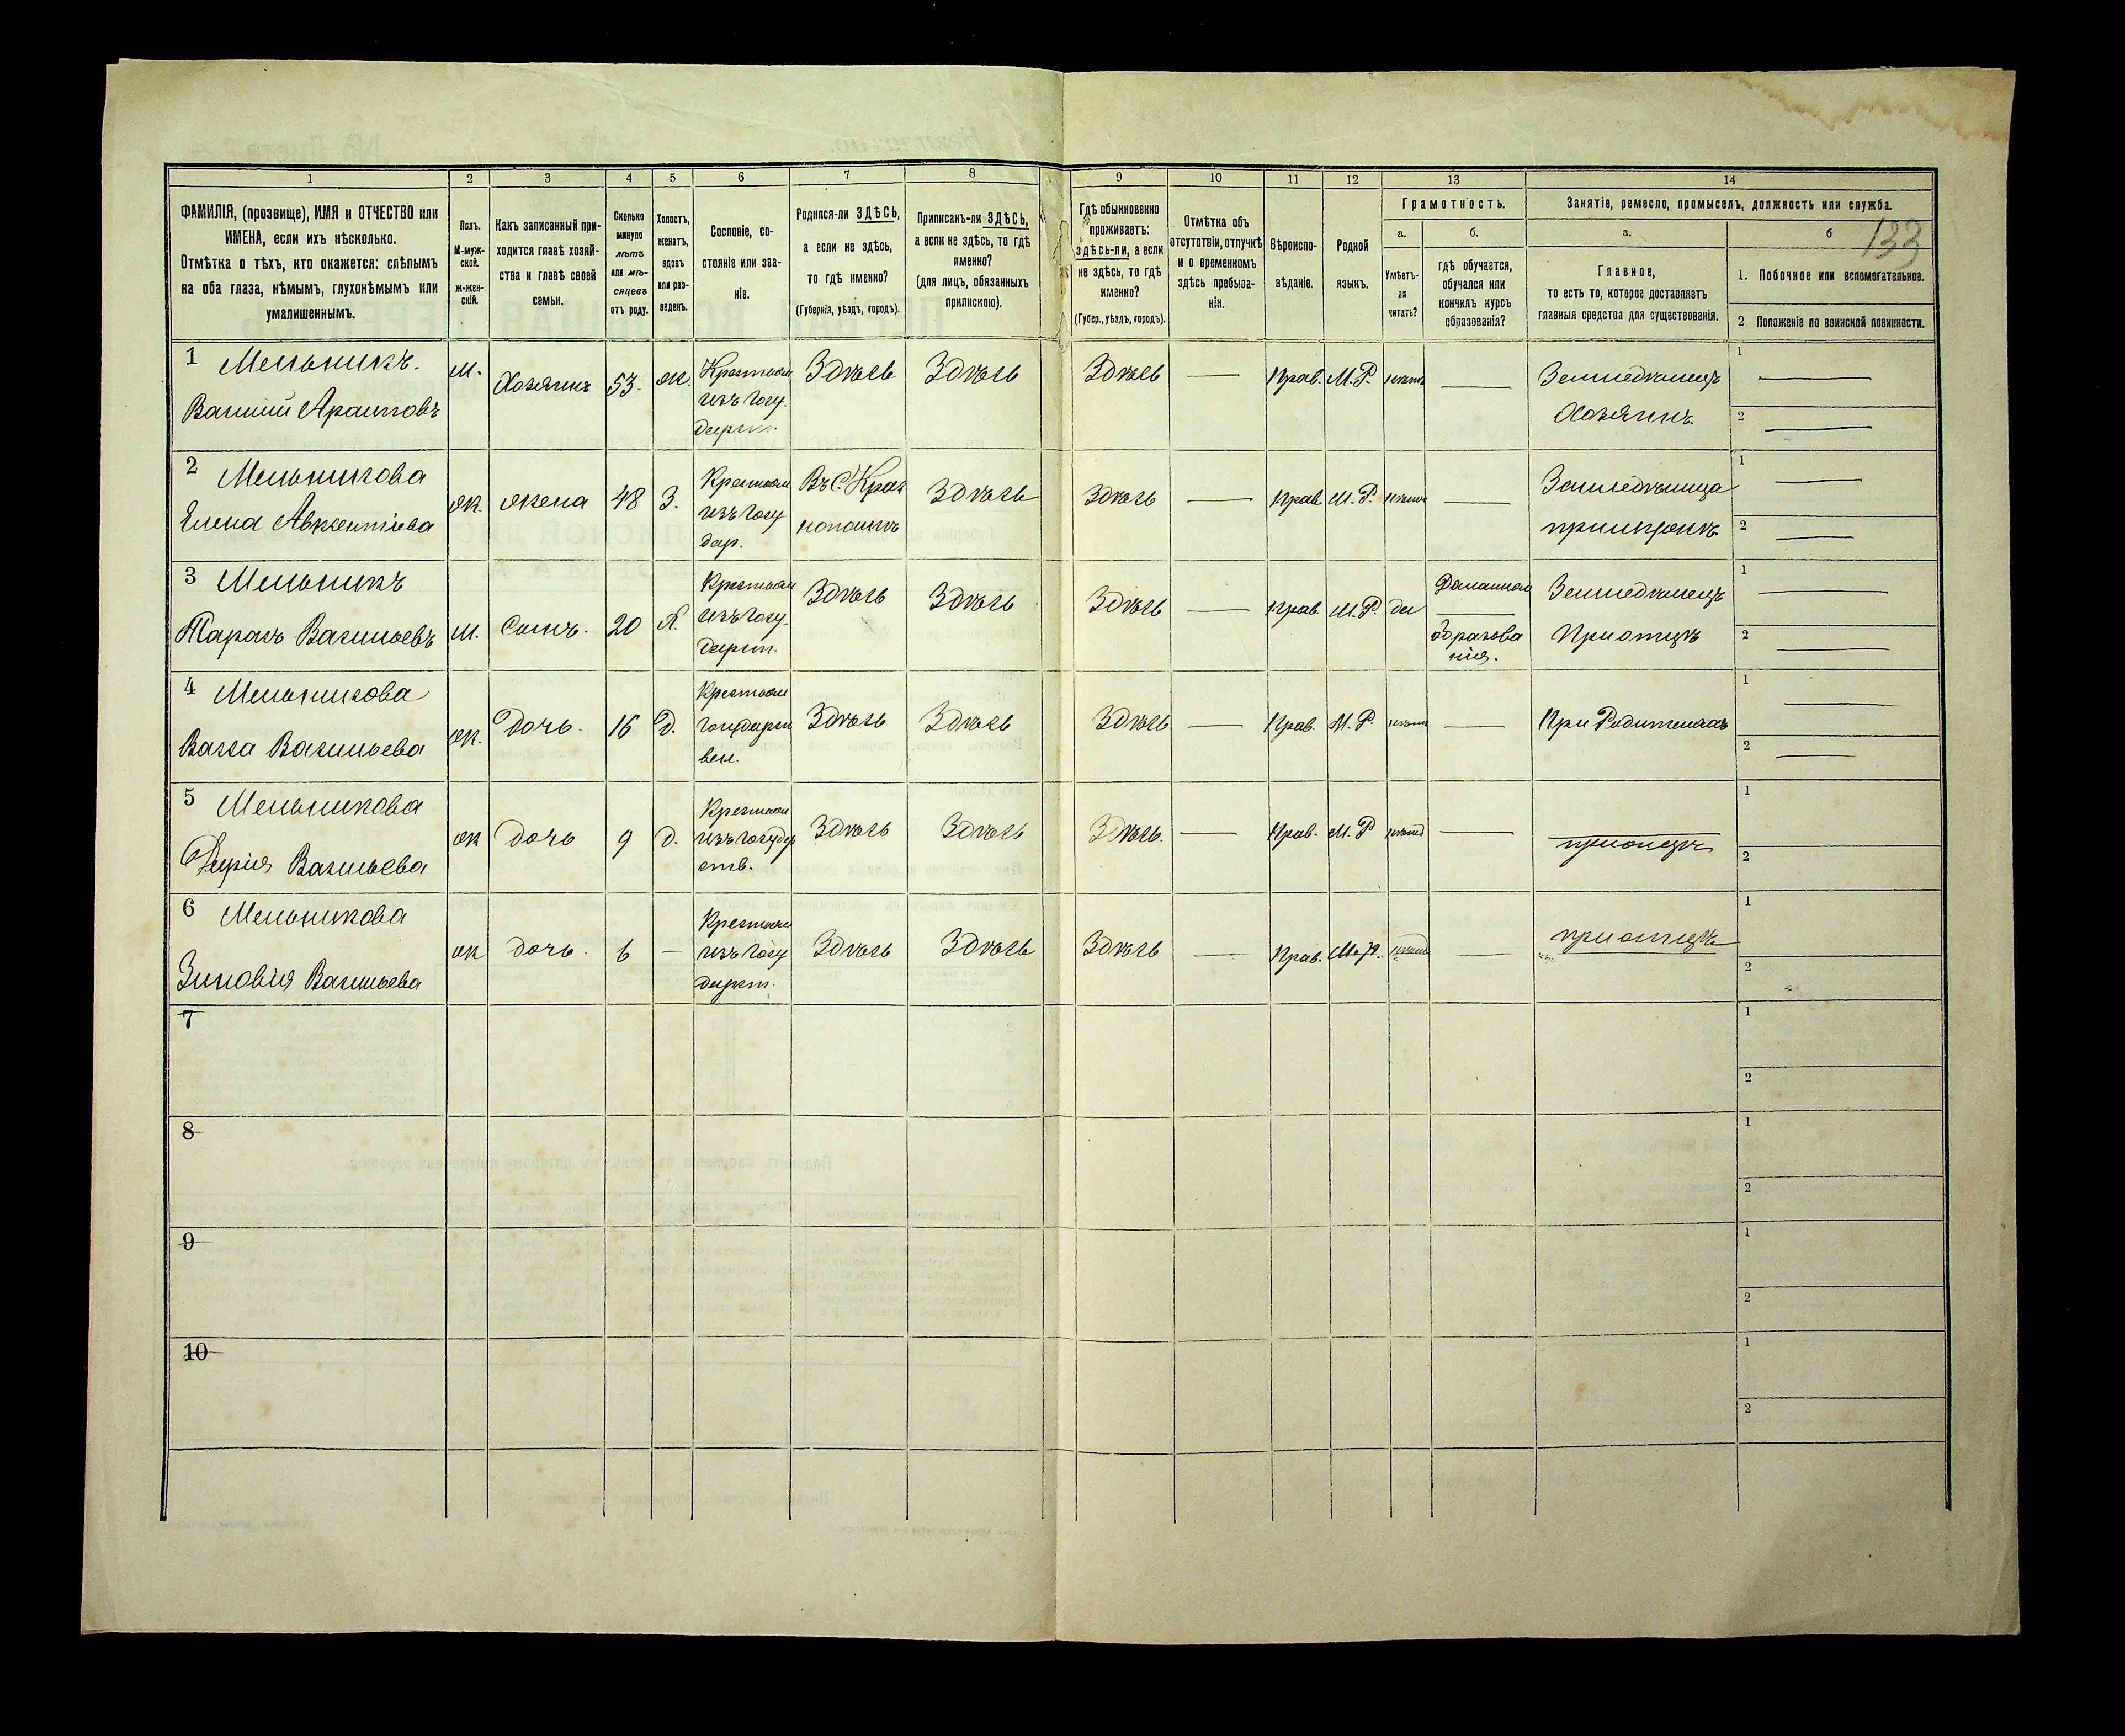 133
1 2 3 4 5 6 7 8 9 10 11 12 13 14
ФАМИЛІЯ, (прозвище), ИМЯ и ОТЧЕСТВО или
ИМЕНА, если ихъ нѣсколько.
Отмѣтка о тѣхъ, кто окажется: слѣпымъ
на оба глаза, нѣмымъ, глухонѣмымъ или
умалишеннымъ.
Полъ.
М-муж-
ской.
ж-жен-
скій.
Какъ записанный при-
ходится главѣ хозяй-
ства и главѣ своей
семьи.
Сколько
минуло
лѣтъ
или мѣ-
сяцевъ
отъ роду.
Холостъ,
женатъ,
вдовъ
или раз-
веденъ.
Сословіе, со-
стояніе или зва-
ніе.
Родился-ли ЗДѢСЬ,
а если не здѣсь,
то гдѣ именно?
(Губернія, уѣздъ, городъ).
Приписанъ-ли ЗДѢСЬ,
а если не здѣсь, то гдѣ
именно?
(для лицъ, обязанныхъ
припискою).
Гдѣ обыкновенно
проживаетъ:
здѣсь-ли, а если
не здѣсь, то гдѣ
именно?
(Губер., уѣздъ, городъ).
Отмѣтка объ
отсутствіи, отлучкѣ
и о временномъ
здѣсь пребыва-
ніи.
Вѣроиспо-
вѣданіе.
Родной
языкъ.
Грамотность.
а.
Умѣетъ-
ли
читать?
б.
гдѣ обучается,
обучался или
кончилъ курсъ
образованія?
Занятіе, ремесло, промыселъ, должность или служба.
а.
Главное,
то есть то, которое доставляетъ
главныя средства для существованія.
б
1. Побочное или вспомогательное.
2 Положеніе по воинской повинности.
1 Мельникъ.
Василій
м.
Хозяинъ
53.
ж.
Крестьян
изъ Госу
дарст.
Здѣсь
Здѣсь
Здѣсь
—
Прав.
М.Р.
нѣтъ
—
Земледѣлецъ
Хозяинъ.
1 —
2 —
2 Мельникова
Елена Авксентіева
ж.
жена
48
З.
Крестьян
изъ Госу
дар.
Въ С.
Здѣсь
Здѣсь
—
Прав
М.Р.
нѣтъ
—
Земледѣлица
1 —
2 —
3 Мельникъ
Тарасъ Васильевъ
м.
Сынъ.
20
Крестьян
изъ Госу
дарст.
Здѣсь
Здѣсь
Здѣсь
—
Прав.
М.Р.
да
Домашняго
образова
нія.
Земледѣлецъ
При отцѣ
1 —
2 —
4 Мельникова
Васса Васильева
ж.
Дочь.
16
Д.
Крестьян
Государст
вен.
Здѣсь
Здѣсь
Здѣсь
—
Прав.
М.Р.
нѣтъ
—
При Родителяхъ
1 —
2 —
5 Мельникова
Васильева
ж
дочь
9
д.
Крестьян
изъ Государ
ств.
Здѣсь
Здѣсь
Здѣсь.
—
Прав.
М.Р
нѣтъ
—
при отцѣ
1
2
6 Мельникова
Зиновія Васильева
ж
дочь.
6
—
Крестьян
изъ Госу
дарст.
Здѣсь
Здѣсь
Здѣсь
—
Прав.
М.Р.
нѣтъ
—
при отцѣ
1
2
7
1
2
8
1
2
9
1
2
10
1
2